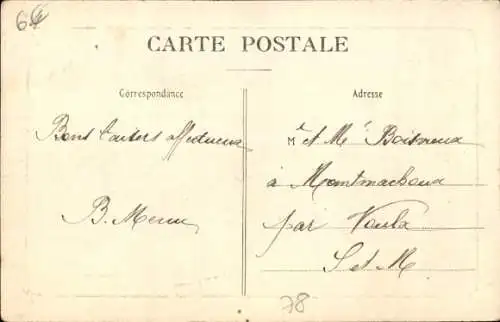 64
CARTE POSTALE
Correspondance
Adresse
Bons baisers affectueux
B. Menu
Mr et Me Boisneux
à Montmachoux
par Voulx
S et M
78